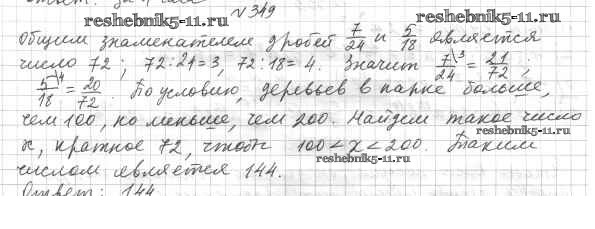 № 349
reshebnik5-11.ru reshebnik5-11.ru
Общим знаменателем дробей 7/24 и 5/18 является
число 72; 72:24=3, 72:18=4. Значит 7\3/24 = 21/72;
5\4/18 = 20/72. По условию, деревьев в парке больше,
чем 100, но меньше, чем 200. Найдем такое число
reshebnik5-11.ru
x, кратное 72, чтобы 100 < x < 200. Таким
reshebnik5-11.ru
числом является 144.
Ответ: 144